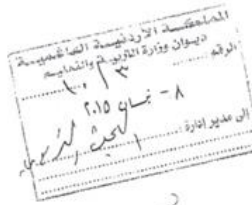 المملكة الأردنية الهاشمية
ديوان وزارة التربية والتعليم
الرقم: ١٠/٣
٨ - نيسان ٢٠١٥
إلى مدير إدارة: البحث